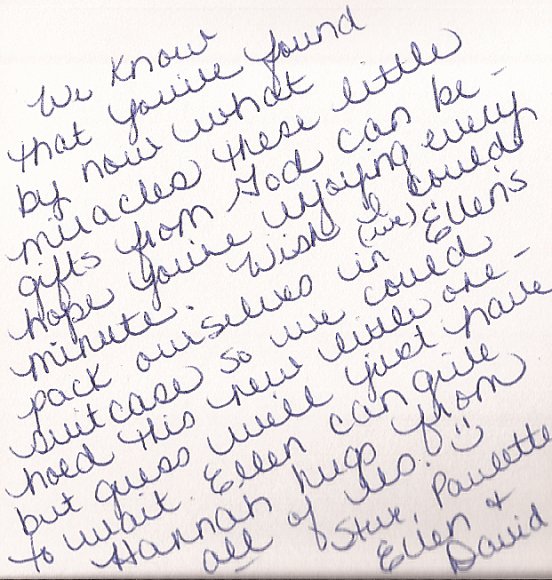 We know
that you've found
by now what
miracles these little
gifts from God can be -
hope you're enjoying every
minute. Wish I could
(we)
pack ourselves in Ellen's
suitcase so we could
hold this new little one -
but guess we'll just have
to wait. Ellen can give
Hannah hugs from
all of us! ☺
Steve, Paulette
Ellen +
David